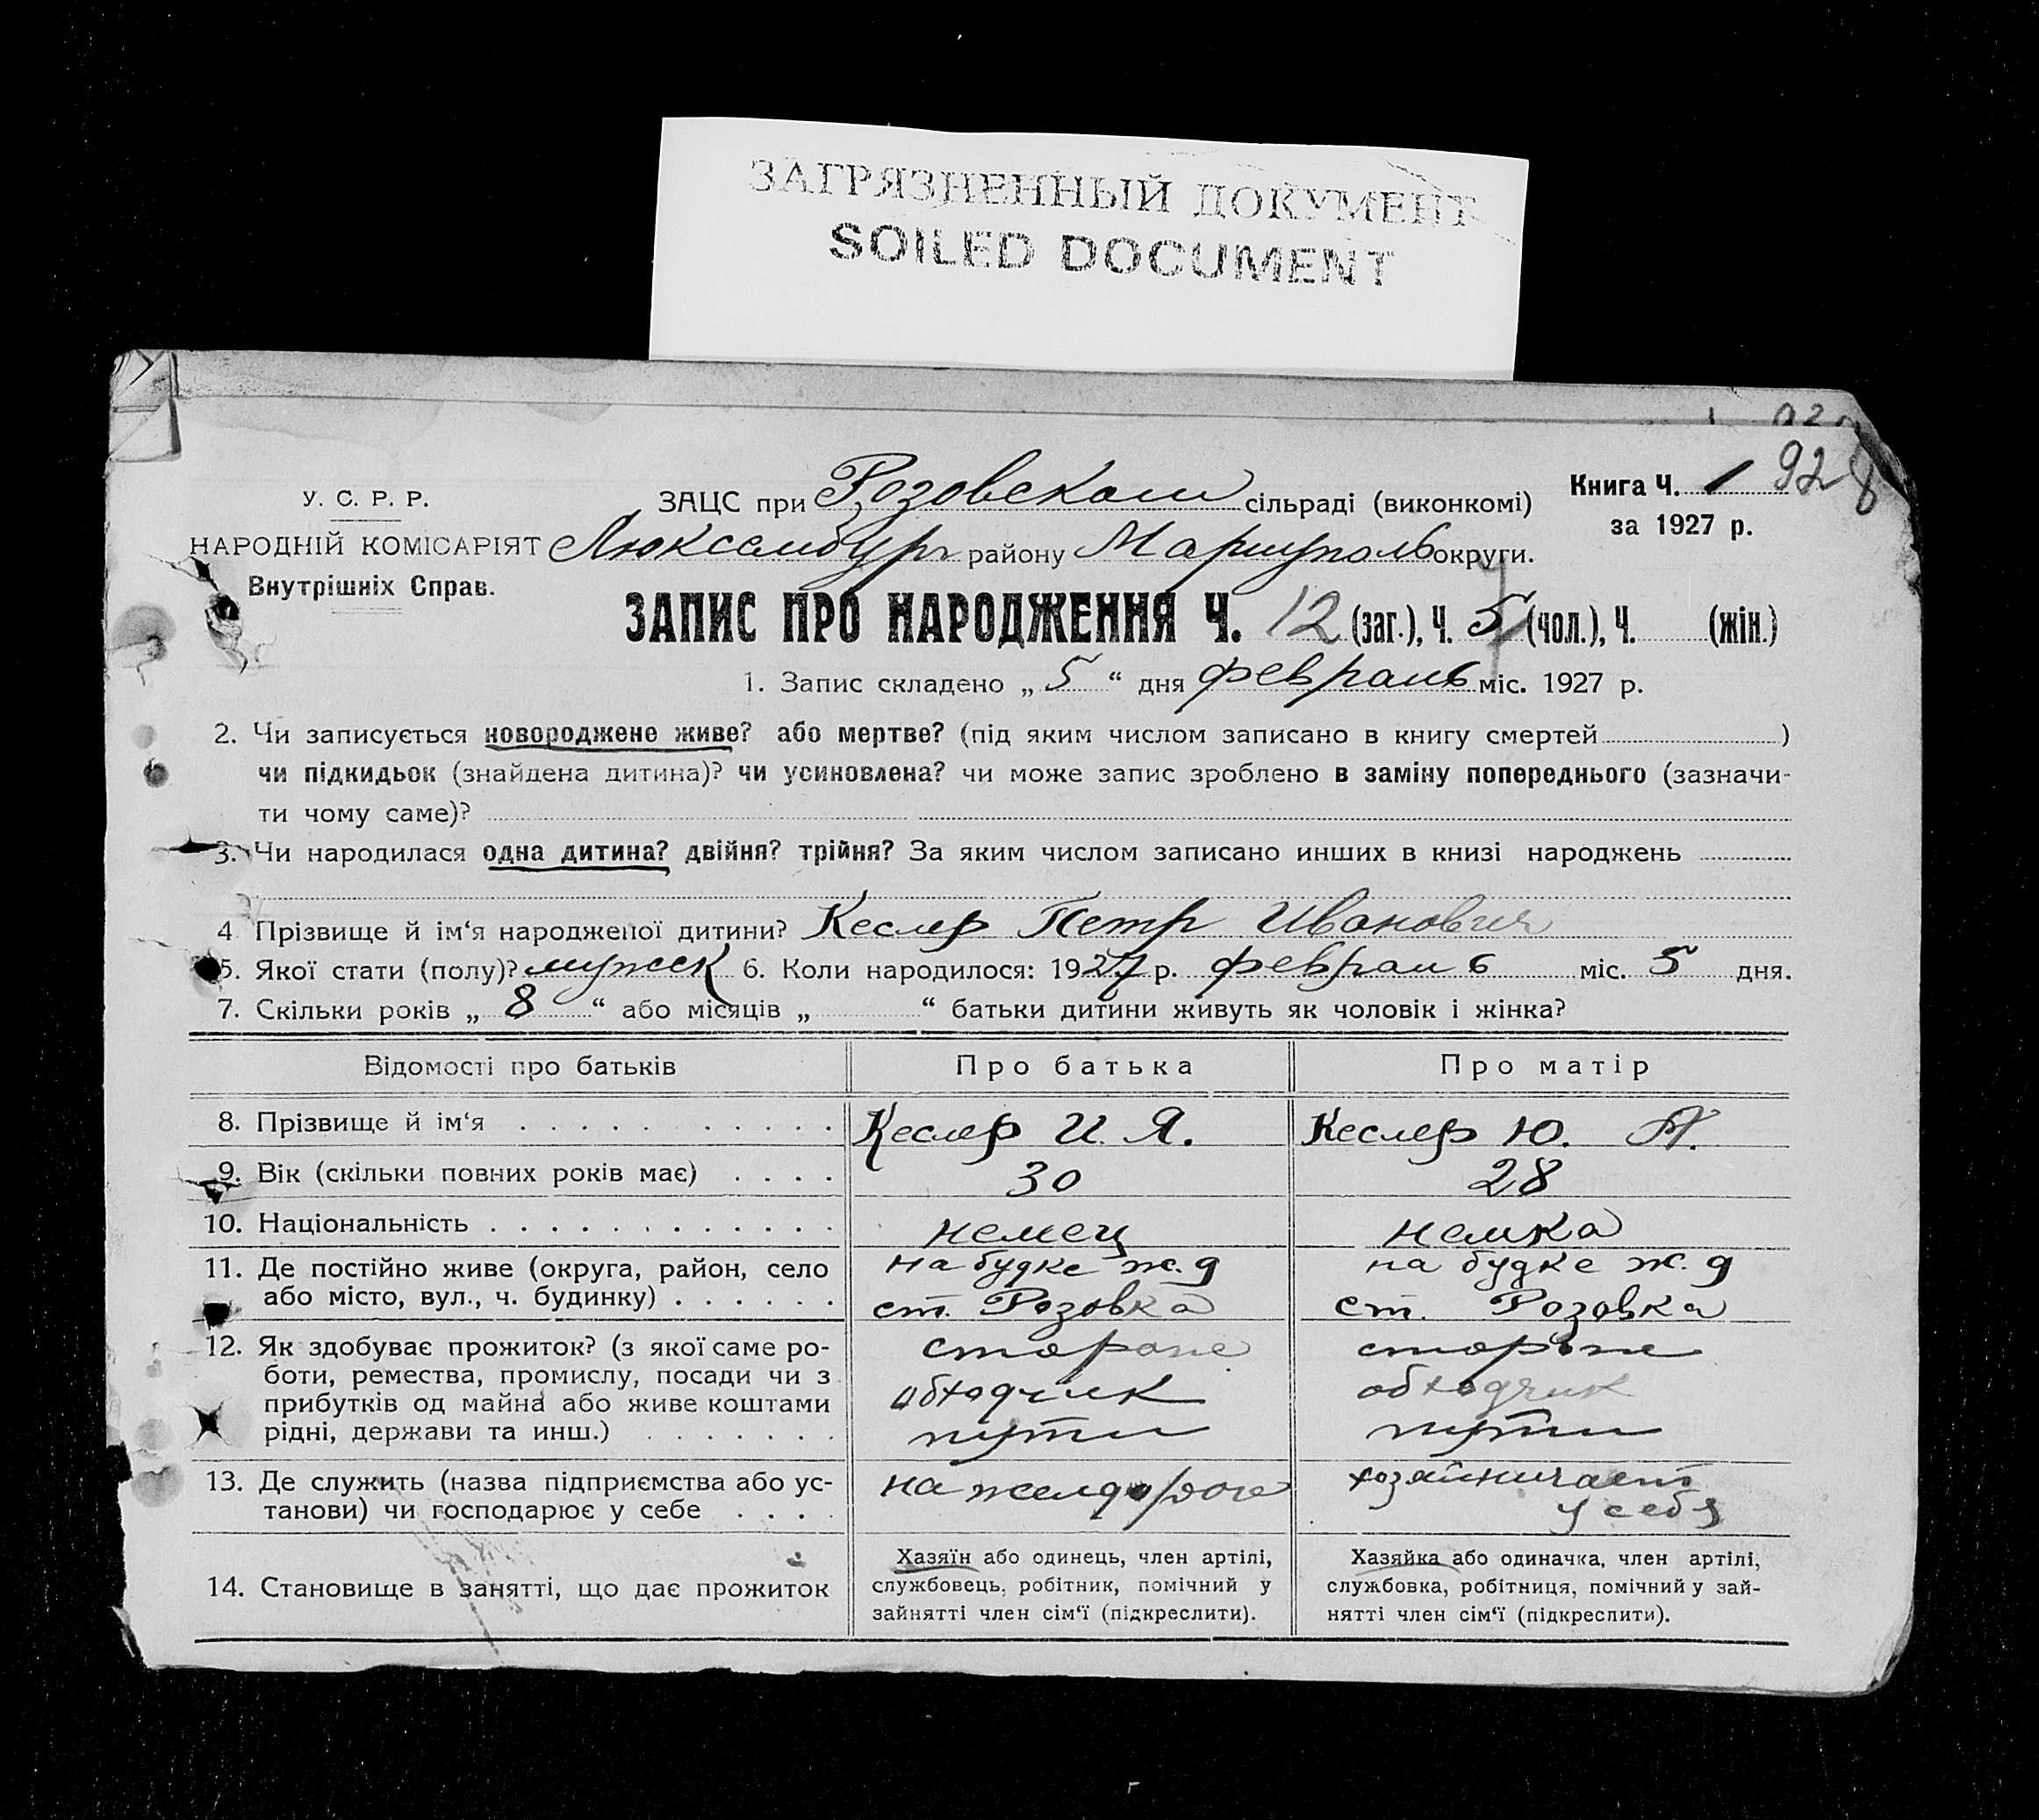 ЗАГРЯЗНЕННЫЙ ДОКУМЕНТ
SOILED DOCUMENT
928
У. С. Р. Р.
НАРОДНІЙ КОМІСАРІЯТ
Внутрішніх Справ.
ЗАЦС при Розовском сільраді (виконкомі)
Люксембург району Мариуполь округи.
Книга Ч. 1
за 1927 р.
ЗАПИС ПРО НАРОДЖЕННЯ Ч. 12 (заг.), Ч. 5 7 (чол.), Ч. (жін.)
1. Запис складено „ 5 “ дня февраль міс. 1927 р.
2. Чи записується новороджене живе? або мертве? (під яким числом записано в книгу смертей )
чи підкидьок (знайдена дитина)? чи усиновлена? чи може запис зроблено в заміну попереднього (зазначи-
ти чому саме)?
3. Чи народилася одна дитина? двійня? трійня? За яким числом записано инших в книзі народжень
4. Прізвище й ім‘я народженої дитини? Кеслер Петр Иванович
5. Якої стати (полу)? мужск 6. Коли народилося: 1927 р. февраль міс. 5 дня.
7. Скільки років „ 8 “ або місяців „ “ батьки дитини живуть як чоловік і жінка?
Відомості про батьків Про батька Про матір
8. Прізвище й ім‘я Кеслер И. Я. Кеслер Ю. А.
9. Вік (скільки повних років має) 30 28
10. Національність немец немка
11. Де постійно живе (округа, район, село на будке ж.д на будке ж.д
або місто, вул., ч. будинку) ст. Розовка ст. Розовка
12. Як здобуває прожиток? (з якої саме ро-
боти, ремества, промислу, посади чи з обходчик обходчик
прибутків од майна або живе коштами
рідні, держави та инш.) пути пути
13. Де служить (назва підприємства або ус- на желдороге хозяйничает
танови) чи господарює у себе у себя
14. Становище в занятті, що дає прожиток
Хазяїн або одинець, член артілі,
службовець, робітник, помічний у
зайнятті член сім‘ї (підкреслити).
Хазяйка або одиначка, член артілі,
службовка, робітниця, помічний у зай-
нятті член сім‘ї (підкреслити).